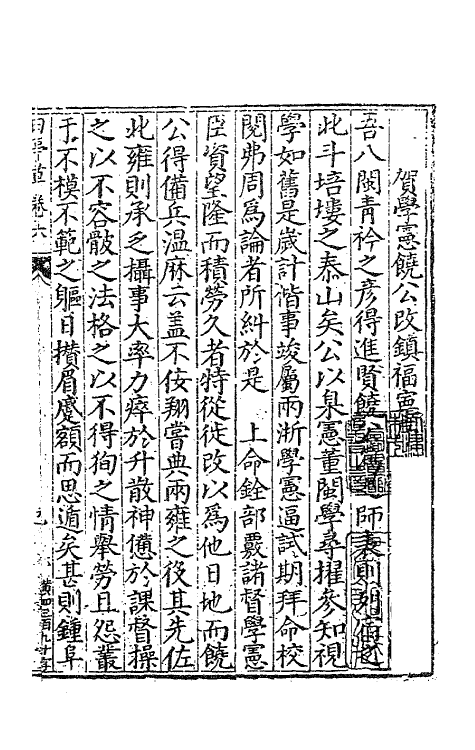 賀學憲饒公改鎮福寧
吾八閩青衿之彥得進賢饒師表則
此斗培塿之泰山矣公以臬憲董閩學尋擢參知視
學如舊是歲計偕事竣屬兩浙學憲逼試期拜命校
閱弗周爲論者所糾於是 上命銓部覈諸督學憲
臣資望隆而積勞久者特從徙改以爲他日地而饒
公得備兵温麻云蓋不佞翔嘗典兩雍之後其先佐
此雍則承之攝事大率力瘁於升散神憊於課督操
之以不容骰之法格之以不得徇之情舉勞且怨叢
于不模不範之軀日攅眉蹙額而思遁矣甚則鍾阜
卷六